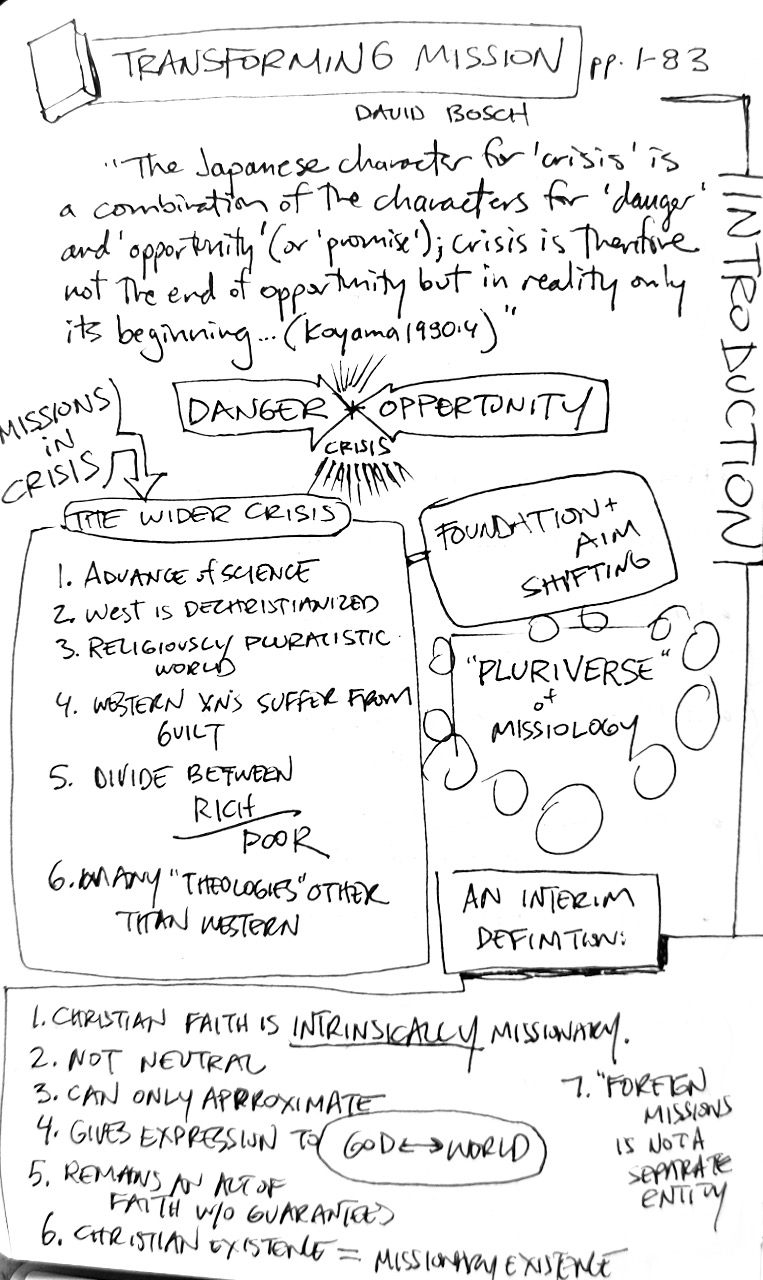 TRANSFORMING MISSION pp. 1-83
DAVID BOSCH
INTRODUCTION
"The Japanese character for 'crisis' is
a combination of the characters for 'danger'
and 'opportunity' (or 'promise'); crisis is therefore
not the end of opportunity but in reality only
its beginning... (Koyama 1980:4)"
DANGER * OPPORTUNITY
CRISIS
MISSIONS
IN
CRISIS
THE WIDER CRISIS
1. ADVANCE of SCIENCE
2. WEST IS DECHRISTIANIZED
3. RELIGIOUSLY PLURALISTIC
WORLD
4. WESTERN XNS SUFFER FROM
GUILT
5. DIVIDE BETWEEN
RICH
POOR
6. MANY "THEOLOGIES" OTHER
THAN WESTERN
FOUNDATION +
AIM
SHIFTING
"PLURIVERSE"
of
MISSIOLOGY
AN INTERIM
DEFINITION:
1. CHRISTIAN FAITH IS INTRINSICALLY MISSIONARY.
2. NOT NEUTRAL
3. CAN ONLY APPROXIMATE
4. GIVES EXPRESSION TO GOD ↔ WORLD
5. REMAINS AN ACT OF
FAITH W/O GUARANTEES
6. CHRISTIAN EXISTENCE = MISSIONARY EXISTENCE
7. "FOREIGN
MISSIONS
IS NOT A
SEPARATE
ENTITY